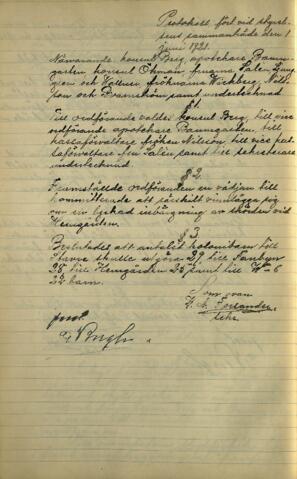 Protokoll fört vid styrel-
sens sammanträde den 1
Juni 1921.
Närvarande konsul Berg, apotekare Baum-
garten konsul Öhman, fruarna Salén, Ljung-
gren och Kellner, fröknarna Wickberg, Nils-
son och samt undertecknad
§ 1.
Till ordförande valdes konsul Berg, till vice
ordförande apotekare Baumgarten, till
kassaförvaltare fröken Nilsson till vice kas-
saförvaltare fru Salén samt till sekreterare
undertecknad.
§ 2.
Framställde ordföranden en vädjan till
kommitterade att särskilt vinnlägga sig
om en lyckad inbärgning av skörden vid
Hemgården.
§ 3.
Beslutades att antalet kolonibarn till
skulle utgöra 29, till
28, till Hemgården 25 samt till
22 barn.
Som ovan
Forlander
sekr.
just.